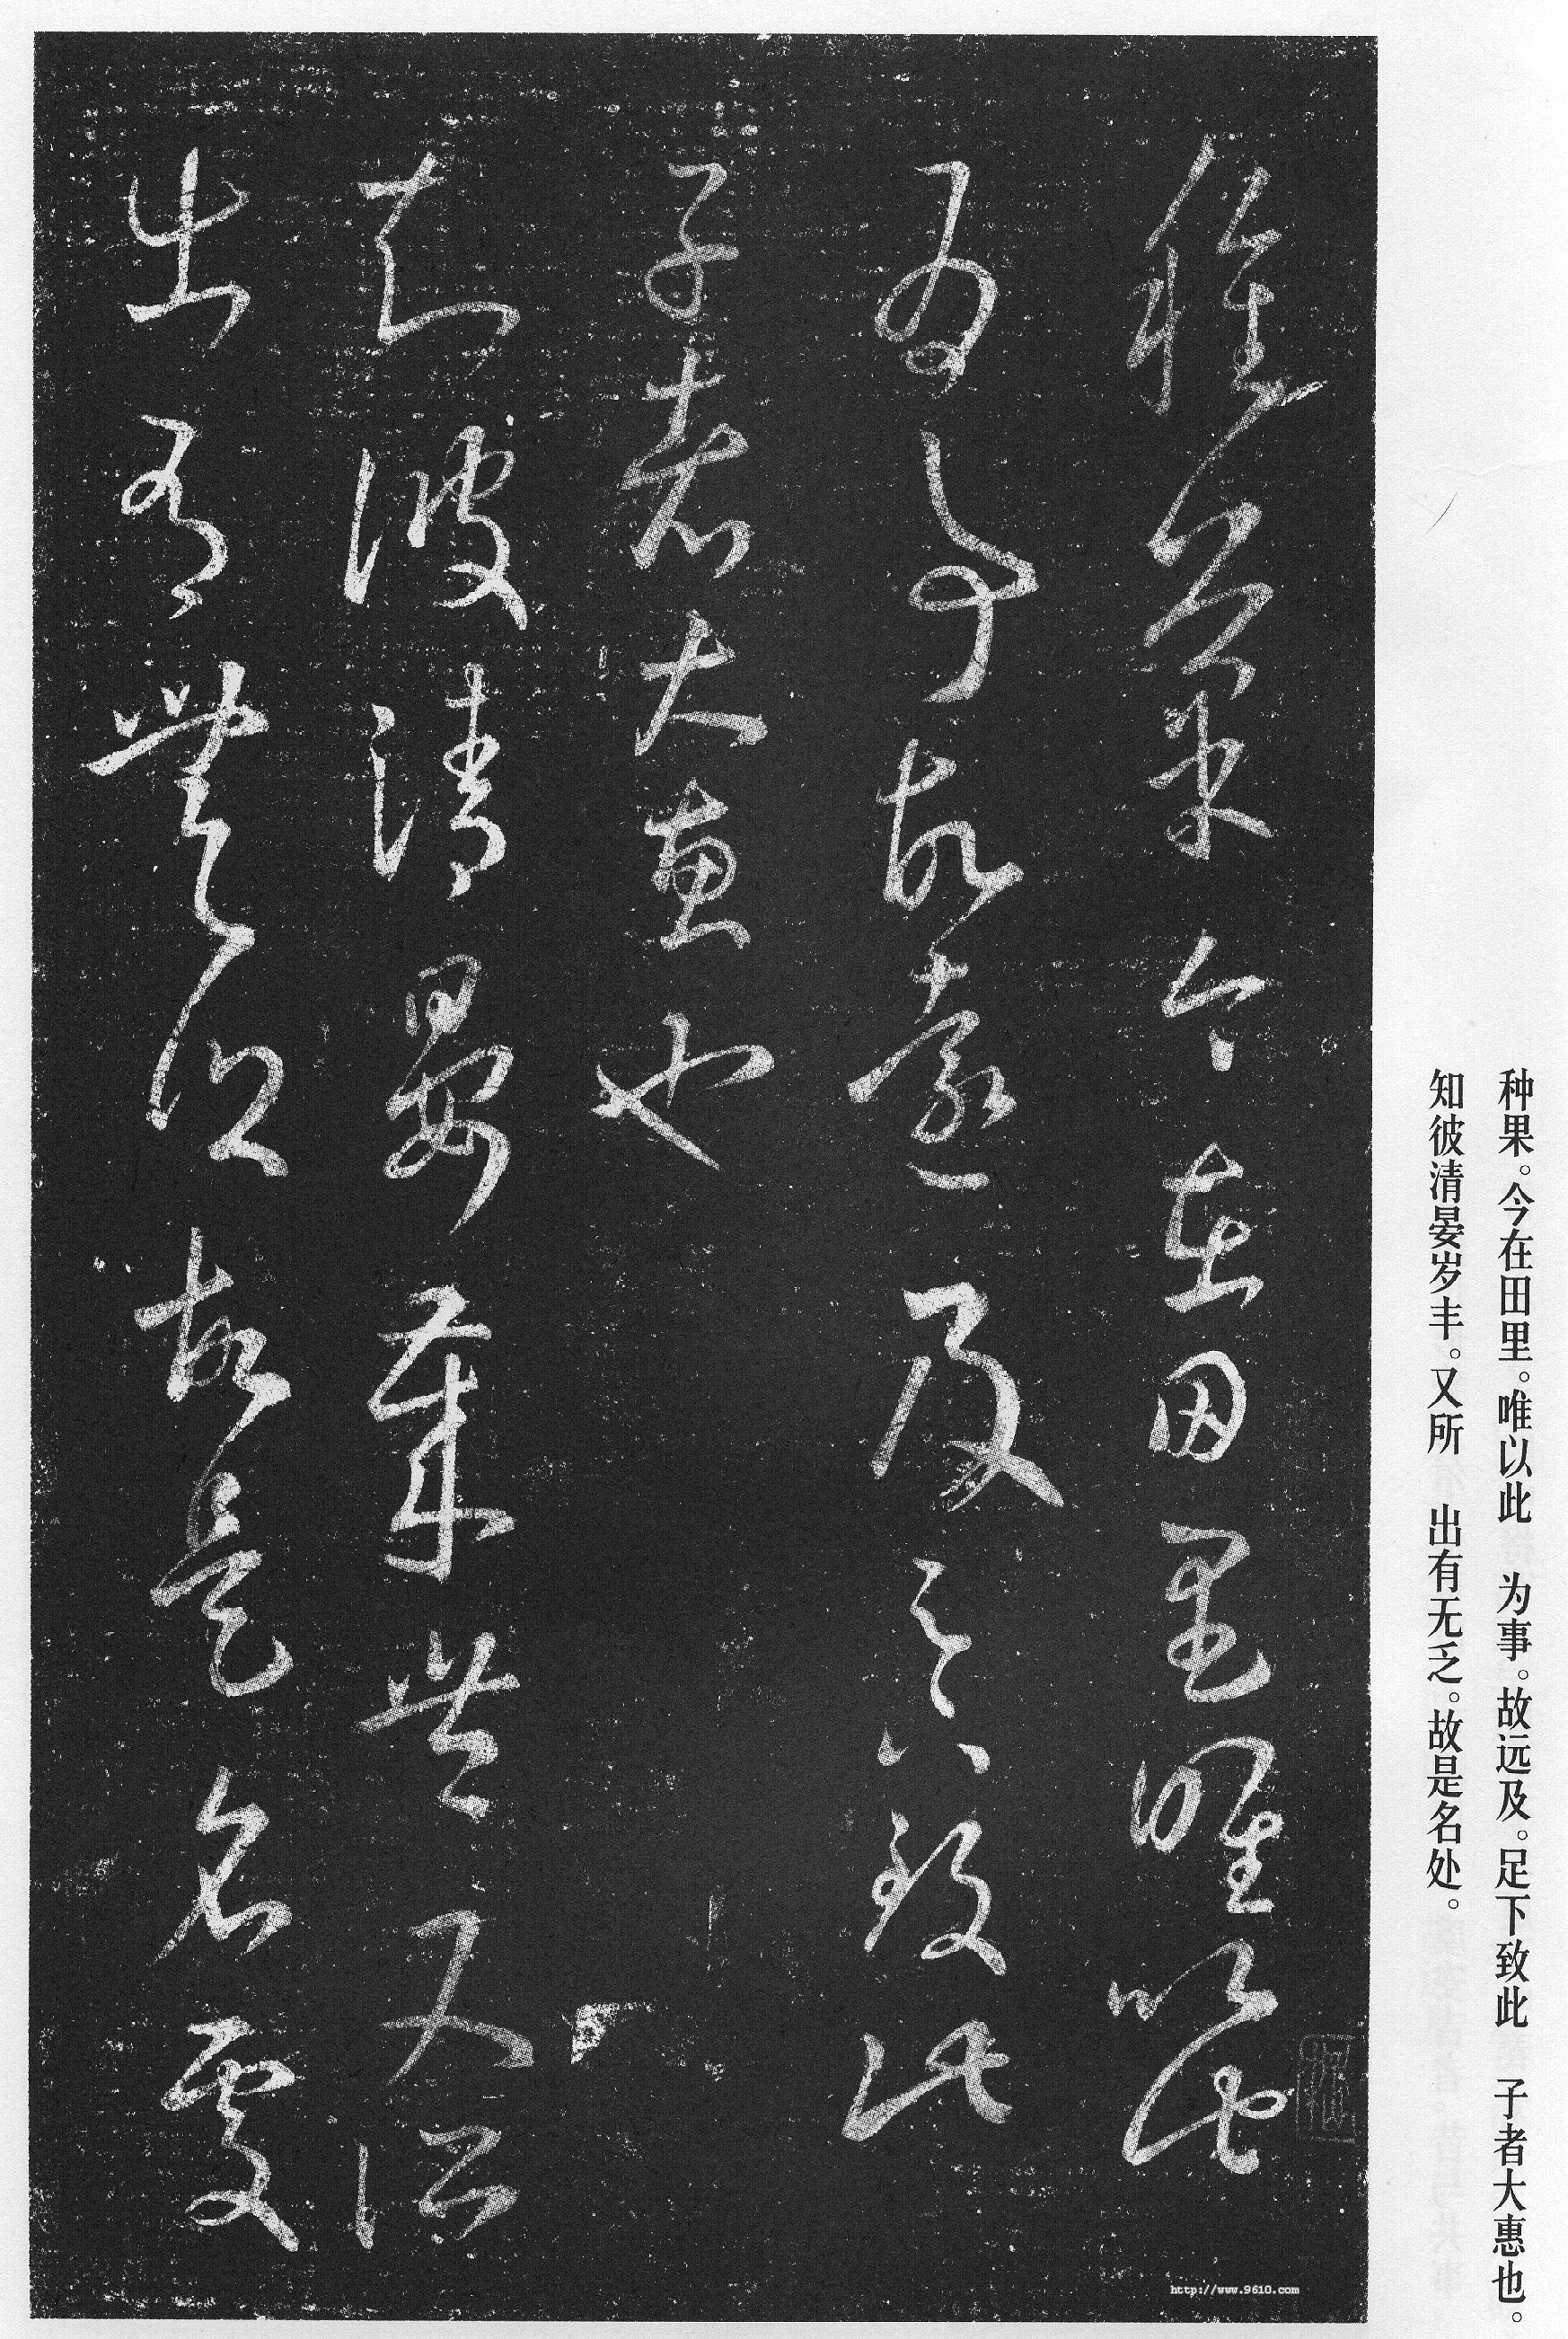 种果。今在田里。唯以此　为事。故远及。足下致此　子者大惠也。
知彼清晏岁丰。又所　出有无乏。故是名处。
種果今在田里唯以此
為事故遠及足下致此
子者大惠也
知彼清晏歲豐又所
出有無乏故是名處
http://www.9610.com